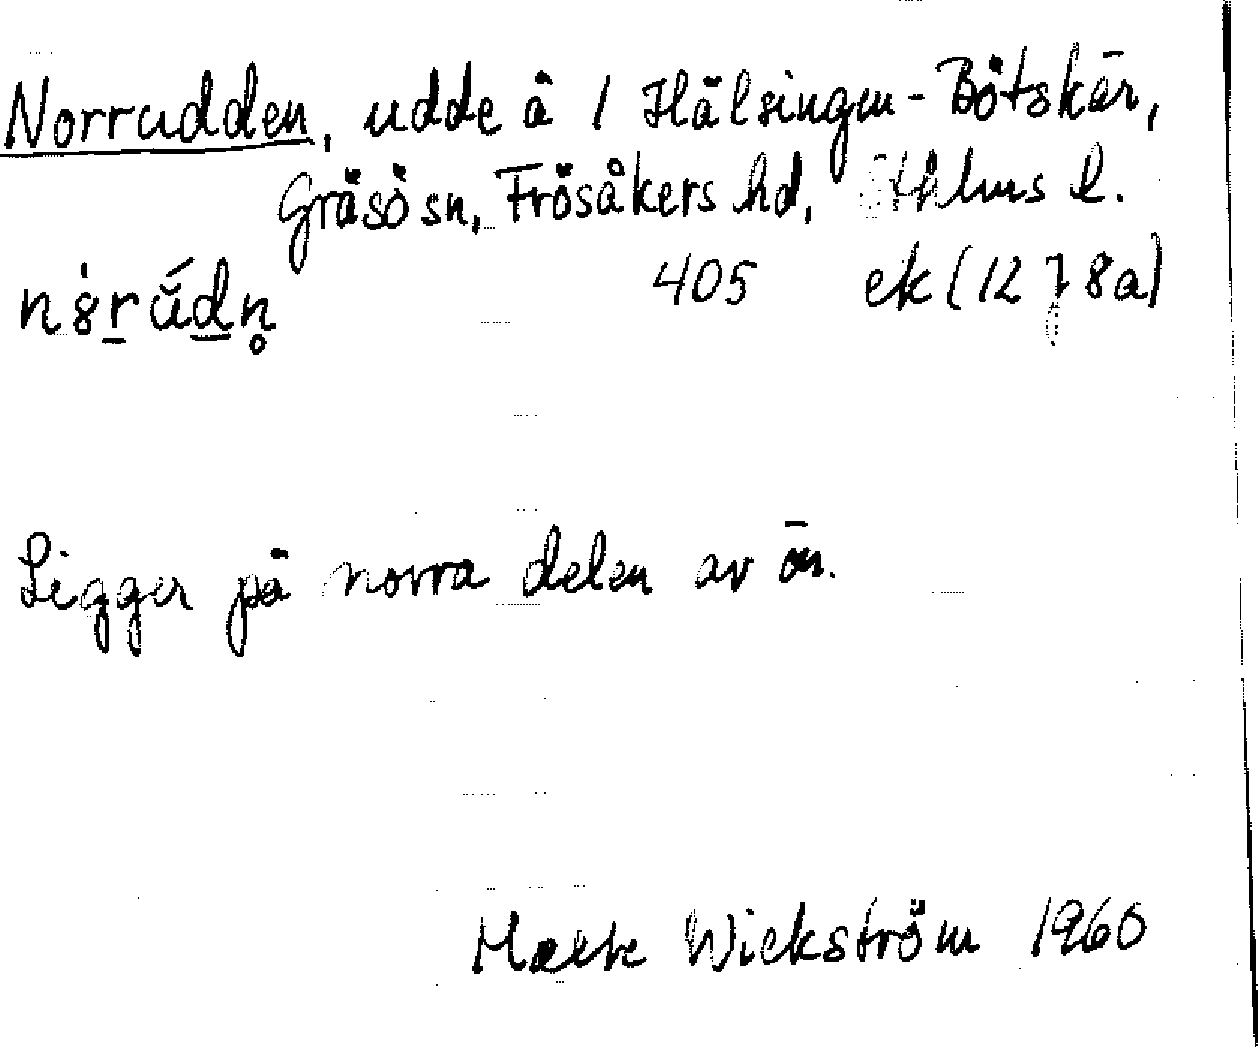 Norrudden, udde å 1 Hälsingen-Båtskär,
Gräsö sn, Frösåkers hd, Sthlms l.
405 ek (12 I 8a)
Ligger på norra delen av ön.
Malte Wickström 1960